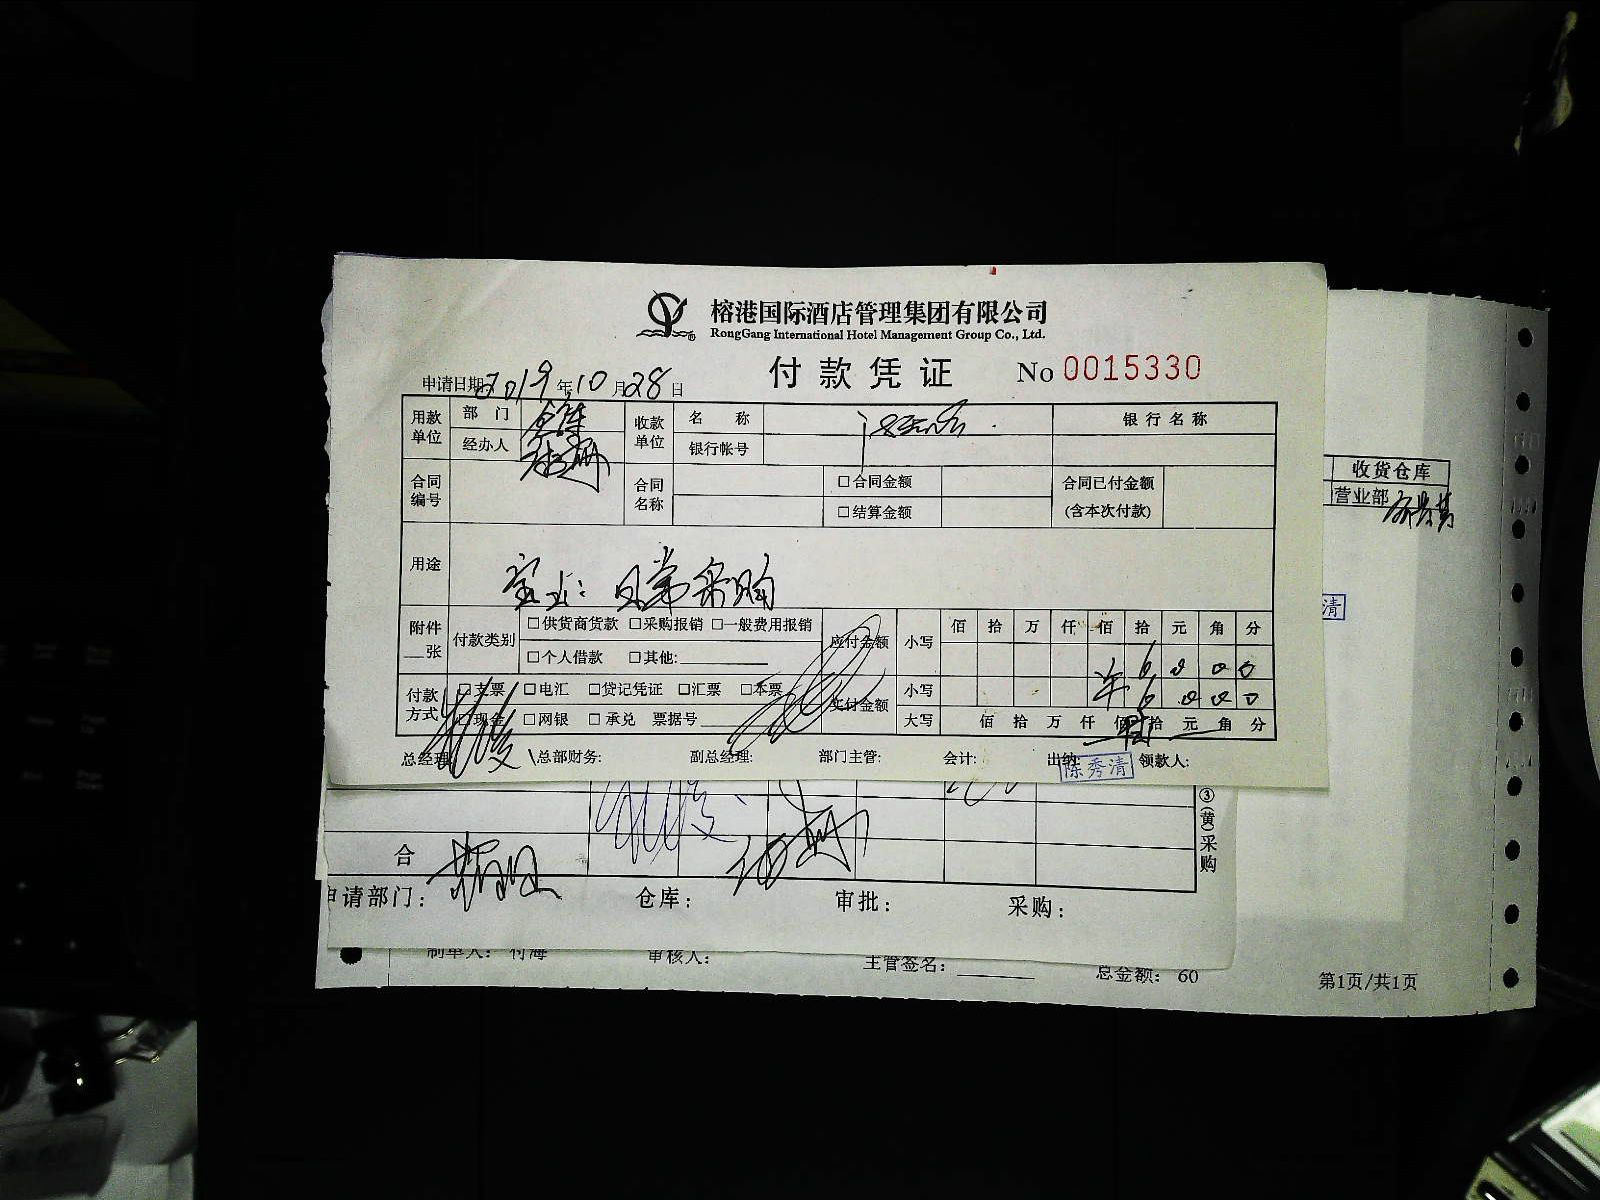 榕港国际酒店管理集团有限公司
RongGang International Hotel Management Group Co., Ltd.
付款凭证 No 0015330
申请日期 2019 年 10 月 28 日
用款单位 部门 仓库 收款单位 名称 银行名称
经办人 银行帐号
合同编号 合同名称 □合同金额 合同已付金额(含本次付款)
□结算金额
用途 日常采购
附件__张 付款类别 □供货商货款 □采购报销 □一般费用报销 应付金额 小写 佰 拾 万 仟 佰 拾 元 角 分
□个人借款 □其他: ¥ 6 0 0 0
付款方式 □支票 □电汇 □贷记凭证 □汇票 □本票 实付金额 小写 6 0 0 0
□现金 □网银 □承兑 票据号 大写 佰 拾 万 仟 佰 拾 元 角 分
总经理 总部财务: 副总经理: 部门主管: 会计: 出纳 陈秀清 领款人:
收货仓库
营业部
清
③(黄)采购
合
申请部门: 仓库: 审批: 采购:
制单人: 付海 审核人: 主管签名: 总金额: 60 第1页/共1页